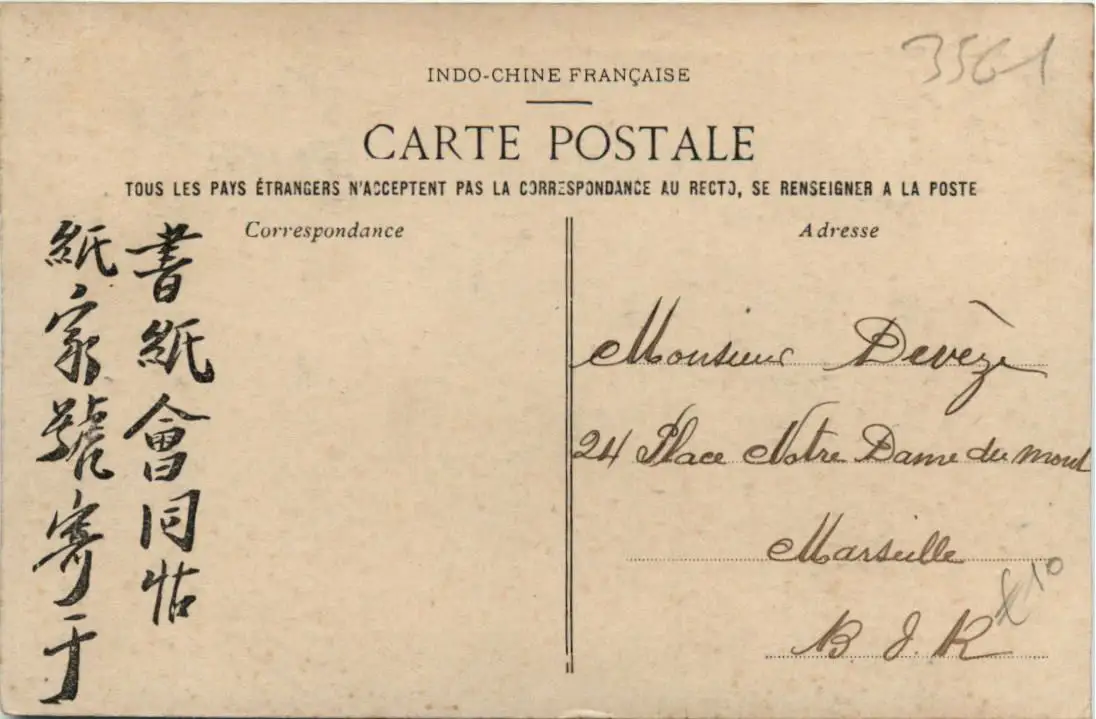 3561
INDO-CHINE FRANÇAISE
CARTE POSTALE
TOUS LES PAYS ÉTRANGERS N'ACCEPTENT PAS LA CORRESPONDANCE AU RECTO, SE RENSEIGNER A LA POSTE
Correspondance
書紙會同帖
紙家號寄于
Adresse
Monsieur Devèze
24 Place Notre Dame du mont
Marseille
B J. R
£10